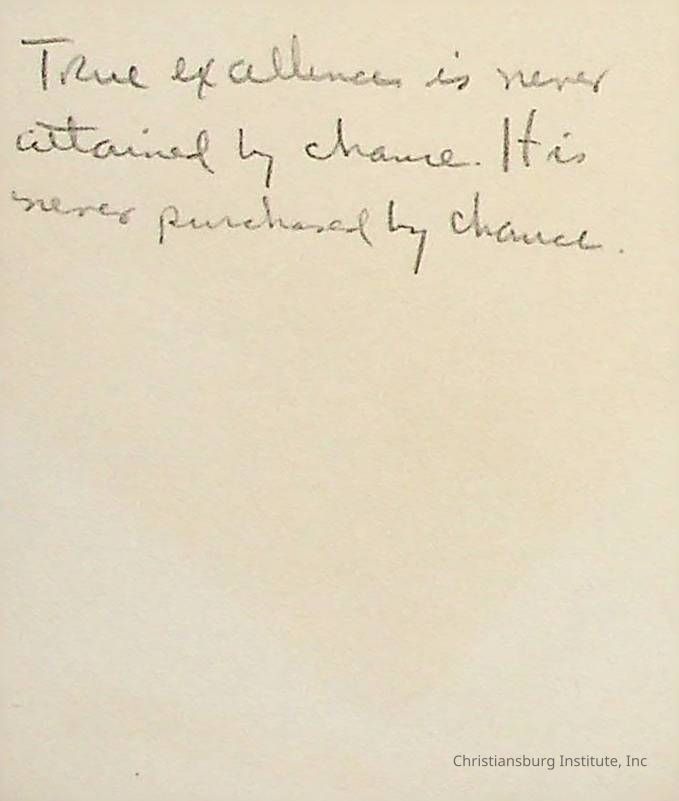 True excellence is never
attained by chance. It is
never purchased by chance.
Christiansburg Institute, Inc